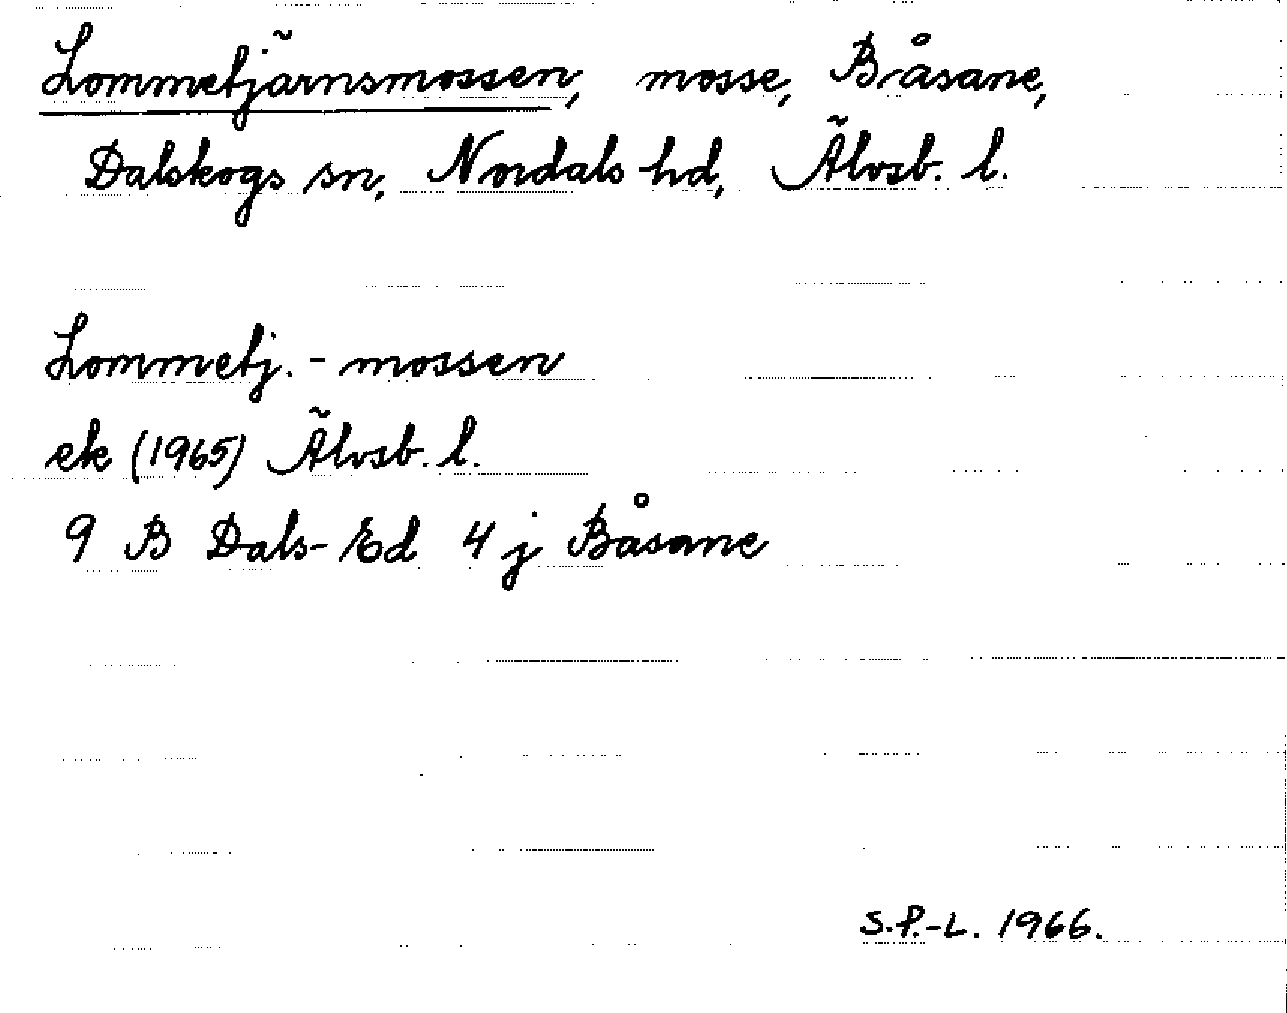 Lommetjärnsmossen, mosse, Båsane,
Dalskogs sn, Nordals hd, Älvsb. l.
Lommetj.-mossen
ek (1965) Älvsb. l.
9 B Dals-Ed 4 j Båsane
S.P.-L. 1966.